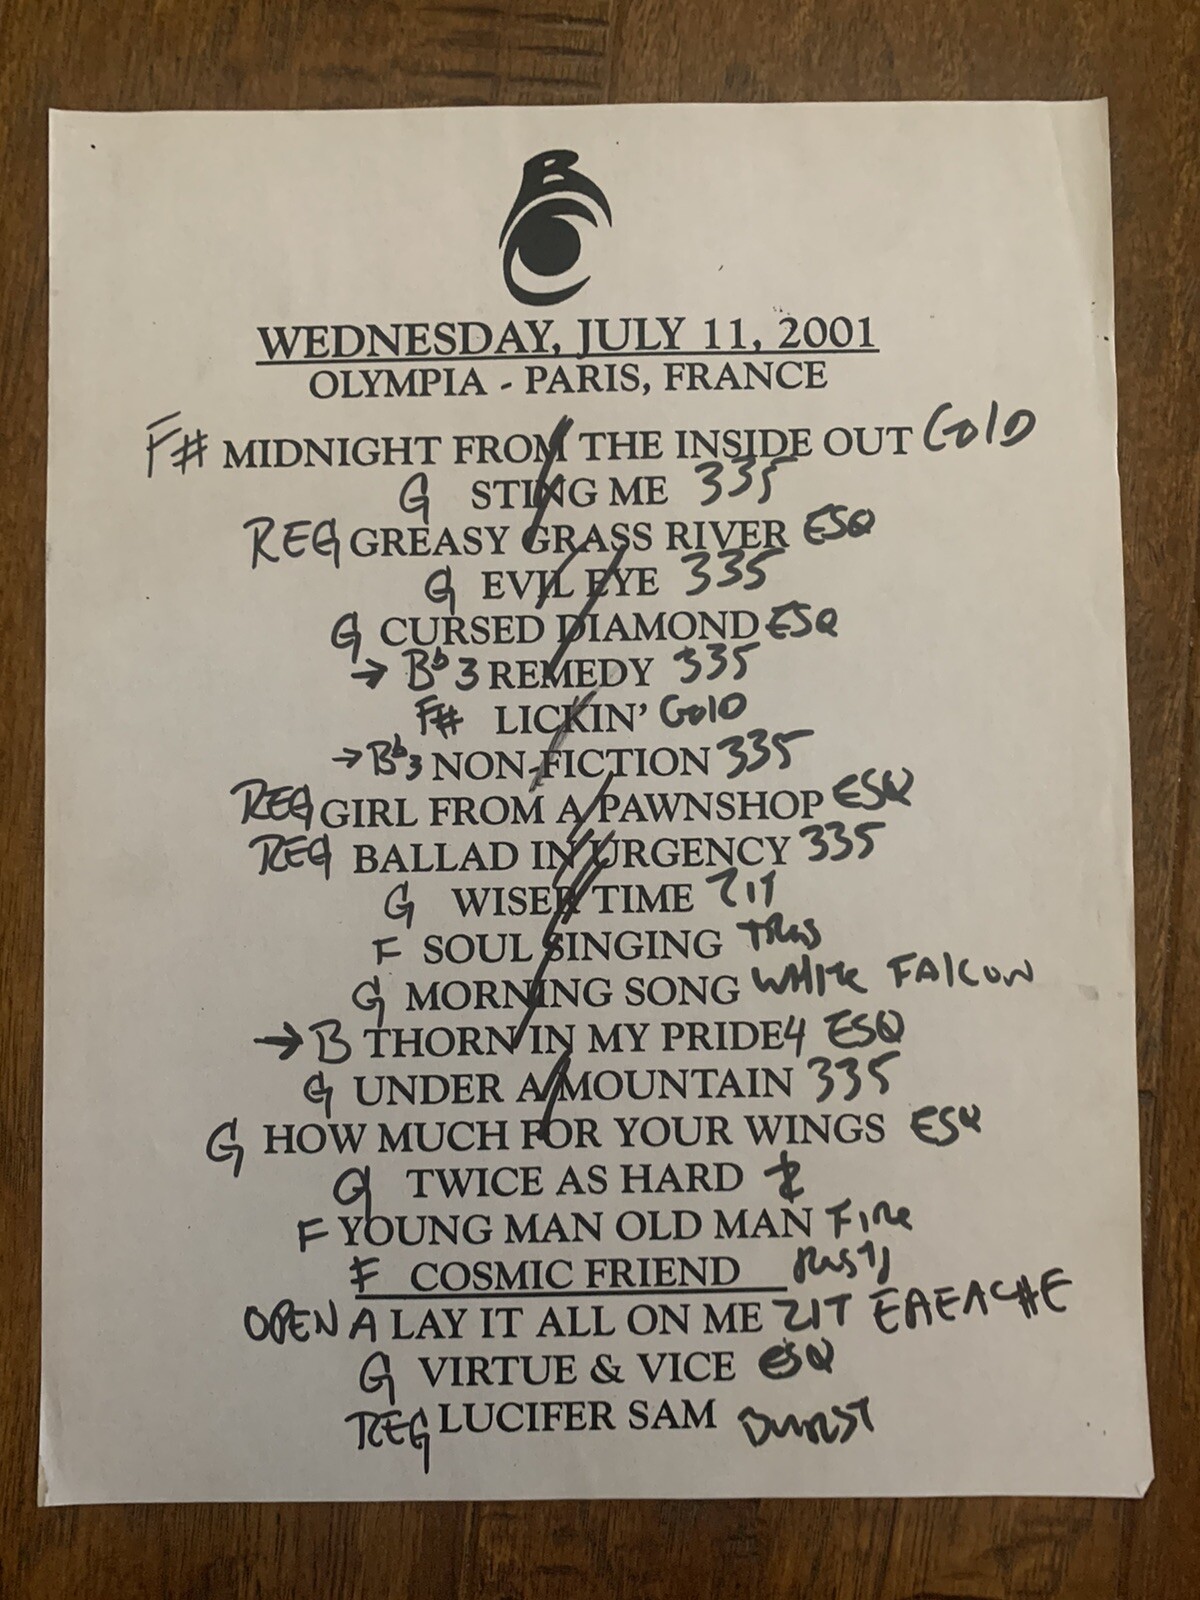 B
WEDNESDAY, JULY 11, 2001
OLYMPIA - PARIS, FRANCE
F# MIDNIGHT FROM THE INSIDE OUT GOLD
G STING ME 335
REG GREASY GRASS RIVER ESQ
G EVIL EYE 335
G CURSED DIAMOND ESQ
→ Bb 3 REMEDY 335
F# LICKIN' GOLD
→ Bb 3 NON-FICTION 335
REG GIRL FROM A PAWNSHOP ESQ
REG BALLAD IN URGENCY 335
G WISER TIME ZIT
F SOUL SINGING
G MORNING SONG WHITE FALCON
→ B THORN IN MY PRIDE 4 ESQ
G UNDER A MOUNTAIN 335
G HOW MUCH FOR YOUR WINGS ESQ
G TWICE AS HARD
F YOUNG MAN OLD MAN FIRE
F COSMIC FRIEND RUSTY
OPEN A LAY IT ALL ON ME ZIT EAEACHE
G VIRTUE & VICE ESQ
REG LUCIFER SAM BURST